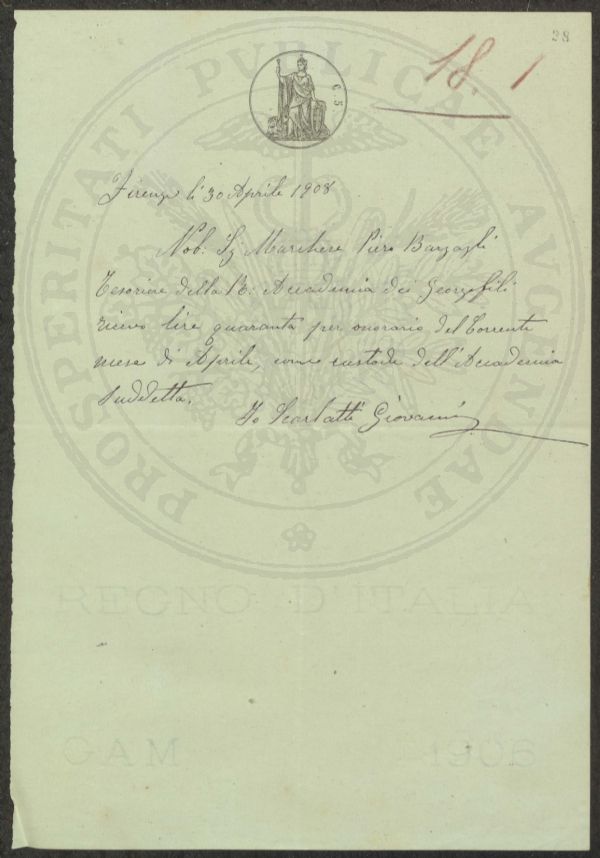 28
18. 1
C. 5
PROSPERITATI PUBLICAE AUGENDAE
Firenze li 30 Aprile 1908
Nob. Sg Marchese Piero Bargagli
Tesoriere della R. Accademia dei Georgofili
ricevo lire quaranta per onorario del Corrente
mese di Aprile, come custode dell'Accademia
Suddetta.
Io Scarlatti Giovanni
REGNO D'ITALIA
GAM 1906